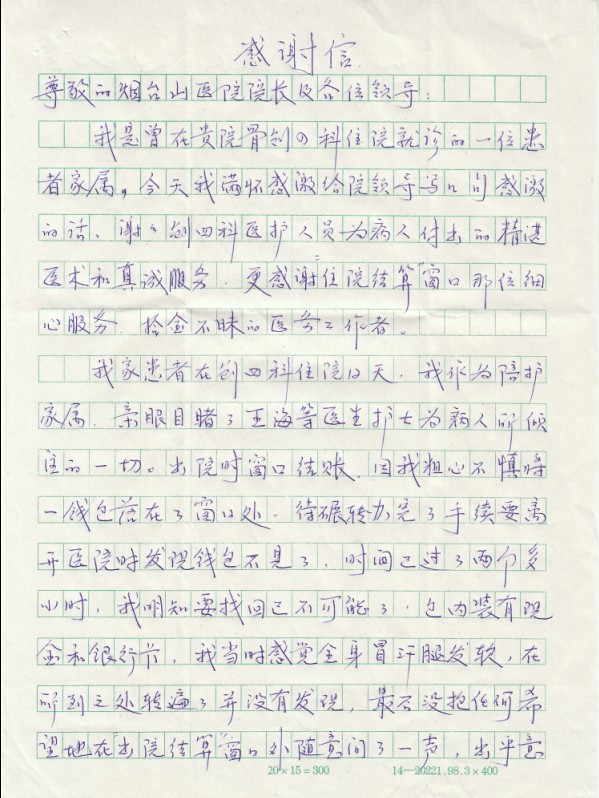 感谢信
尊敬的烟台山医院院长及各位领导：
我是曾在贵院骨创四科住院就诊的一位患
者家属，今天我满怀感激给院领导写几句感激
的话、谢谢创四科医护人员为病人付出的精湛
医术和真诚服务．更感谢“住院结算”窗口那位细
心服务 拾金不昧的医务工作者。
我家患者在创四科住院12天．我作为陪护
家属．亲眼目睹了王海等医生护士为病人所倾
注的一切。出院时窗口结账．因我粗心不慎将
一钱包落在了窗口处．待碾转办完了手续要离
开医院时发现钱包不见了．时间已过了两个多
小时，我明知要找回已不可能了．包内装有现
金和银行卡，我当时感觉全身冒汗腿发软，在
所到之处转遍了并没有发现，最后没抱任何希
望地在“出院结算”窗口处随意问了一声，出乎意
20×15=300 14—20221.98.3×400